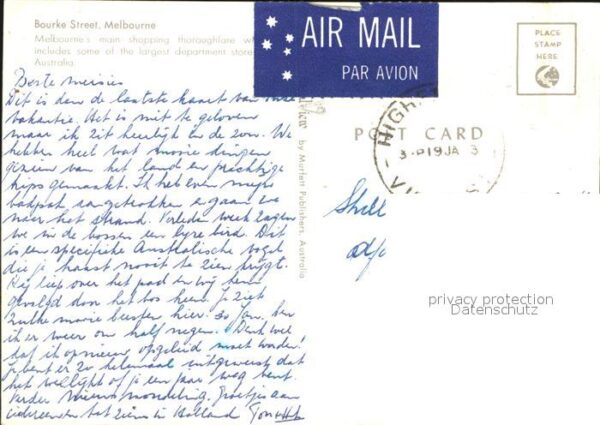 Bourke Street, Melbourne
Melbourne's main shopping thoroughfare wh
includes some of the largest department store
Australia
AIR MAIL
PAR AVION
PLACE
STAMP
HERE
POST CARD
HIGH
3-P19JA 3
VI
View by Murfett Publishers, Australia
Beste meisies
Dit is dan de laatste kaart van onze
vakantie. Het is niet te geloven
maar ik zit heerlijk in de zon. We
hebben heel wat mooie dingen
gezien van het land en prachtige
kips gemaakt. Ik heb even mijn
badpak aangetrokken en gaan zo
naar het strand. Verleden week zagen
we in de bossen een lyre bird. Dit
is een specifieke Australische vogel
die je haast nooit te zien krijgt.
Hij liep over het pad en wij hem
gevolgd door het bos heen. Je ziet
zulke mooie beesten hier. 30 Jan. ben
ik er weer om half negen. Denk wel
dat ik opnieuw opgeleid moet worden!
Je bent er zo helemaal uitgeweest dat
het wel lijkt of je een jaar weg bent.
Verder nieuws mondeling. Groetjes aan
iedereen en tot ziens in Holland
Shell
privacy protection
Datenschutz